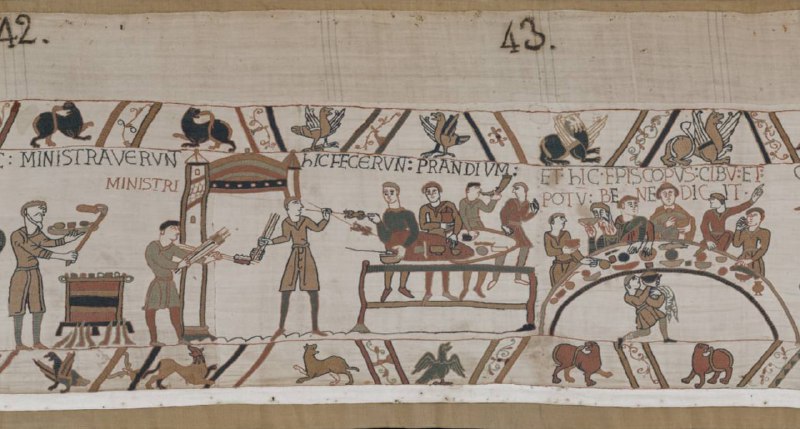 42.
43.
C: MINISTRAVERVN
MINISTRI
hIC FECERVN: PRANDIVM:
ET·hIC·EPISCOPVS·CIBV·ET·
POTV·BE NE DIC IT·